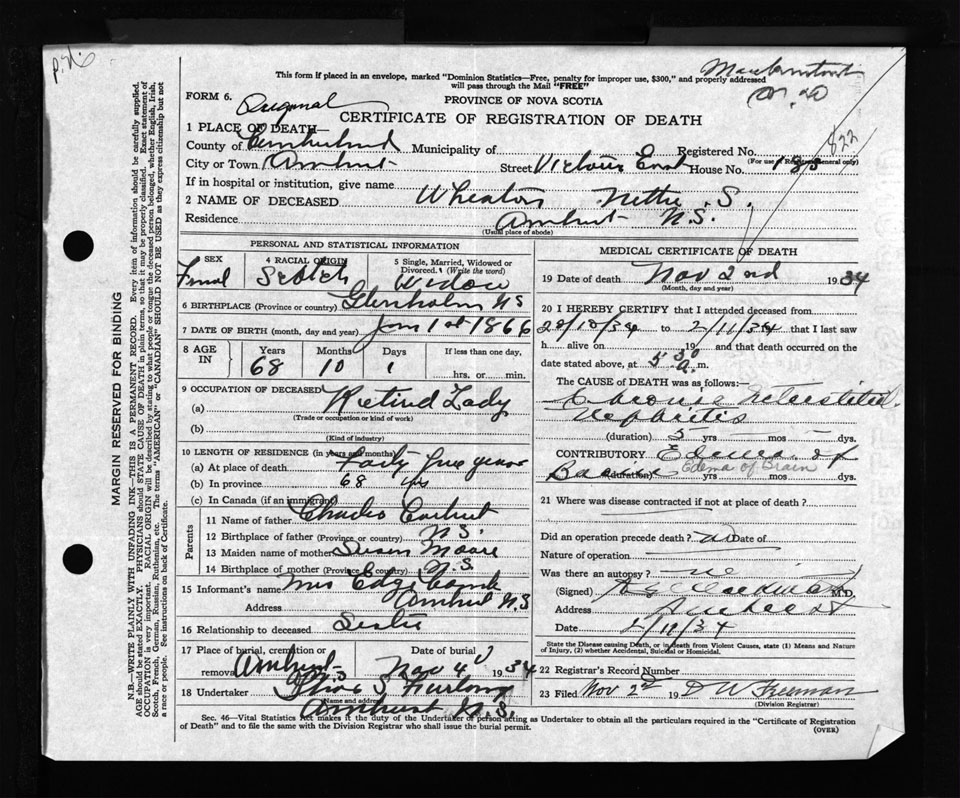 This form if placed in an envelope, marked "Dominion Statistics—Free, penalty for improper use, $300," and properly addressed
will pass through the Mail "FREE"
FORM 6.
PROVINCE OF NOVA SCOTIA
Original
CERTIFICATE OF REGISTRATION OF DEATH
822
1 PLACE OF DEATH—
County of Cumberland Municipality of Registered No.
(For use of Registrar General only)
City or Town Amherst Street Victoria East House No. 183
If in hospital or institution, give name
2 NAME OF DECEASED Wheaton Nettie S.
Residence Amherst N.S.
(Usual place of abode)
PERSONAL AND STATISTICAL INFORMATION
3 SEX Femal 4 RACIAL ORIGIN Scotch 5 Single, Married, Widowed or Divorced. (Write the word) Widow
6 BIRTHPLACE (Province or country) Glenholm NS
7 DATE OF BIRTH (month, day and year) Jan 1st 1866
8 AGE IN Years 68 Months 10 Days 1 If less than one day, hrs. or min.
9 OCCUPATION OF DECEASED
(a) Retired Lady
(Trade or occupation or kind of work)
(b)
(Kind of industry)
10 LENGTH OF RESIDENCE (in years and months)
(a) At place of death Forty five years
(b) In province 68 yrs
(c) In Canada (if an immigrant)
Parents
11 Name of father Charles
12 Birthplace of father (Province or country) N.S.
13 Maiden name of mother Susan Moore
14 Birthplace of mother (Province or country) N.S.
15 Informant's name Mrs
Address Amherst N.S
16 Relationship to deceased Sister
17 Place of burial, cremation or removal Amherst N.S Date of burial Nov 4 1934
18 Undertaker Furlong
Name and address
Amherst N.S.
MEDICAL CERTIFICATE OF DEATH
19 Date of death Nov 2nd 1934
(Month, day and year)
20 I HEREBY CERTIFY that I attended deceased from
29/10/34 to 2/11/34 that I last saw
h alive on 19 and that death occurred on the
date stated above, at 5 30 a. m.
The CAUSE OF DEATH was as follows:
Chronic Interstitial
Nephritis
(duration) 5 yrs mos dys.
CONTRIBUTORY Edema of
Brain Edema of Brain
21 Where was disease contracted if not at place of death?
Did an operation precede death? no Date of
Nature of operation
Was there an autopsy? no
(Signed) M.D.
Address Amherst
Date
State the Disease causing Death, or in death from Violent Causes, state (1) Means and Nature of Injury, (2) whether Accidental, Suicidal or Homicidal.
22 Registrar's Record Number
23 Filed Nov 2nd 19 D W Freeman
(Division Registrar)
Sec. 46—Vital Statistics Act makes it the duty of the Undertaker or person acting as Undertaker to obtain all the particulars required in the "Certificate of Registration
of Death" and to file the same with the Division Registrar who shall issue the burial permit.
(OVER)
MARGIN RESERVED FOR BINDING
N.B.—WRITE PLAINLY WITH UNFADING INK—THIS IS A PERMANENT RECORD. Every item of information should be carefully supplied.
AGE should be stated EXACTLY. PHYSICIANS should STATE CAUSE OF DEATH in plain terms, so that it may be properly classified. Exact statement of
OCCUPATION is very important. RACIAL ORIGIN will be described by stating to what people or tongue the deceased person belonged, whether English, Irish,
Scotch, French, German, Russian, Ruthenian, etc. The terms "AMERICAN" or "CANADIAN" SHOULD NOT BE USED as they express citizenship but not
a race or people. See instructions on back of Certificate.